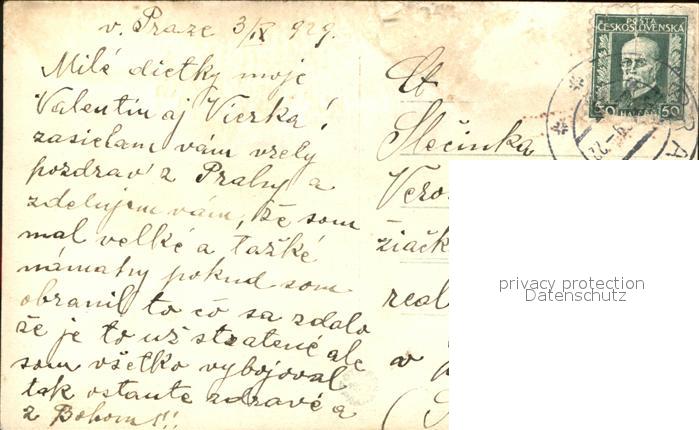 v. Praze 3/IX 929.
Milé dietky moje
Valentín aj Vierka!
zasielam vám vrelý
pozdrav z Prahy a
zdelujem vám, že som
mal velké a tažké
námahy pokud som
obranil to čo sa zdalo
že je to už stratené ale
som všetko vybojoval
tak ostante zdravé a
z Bohom!!
Ct
Slečinka
Vero
žiačk
real
v
POŠTA
ČESKOSLOVENSKA
50 50
privacy protection
Datenschutz